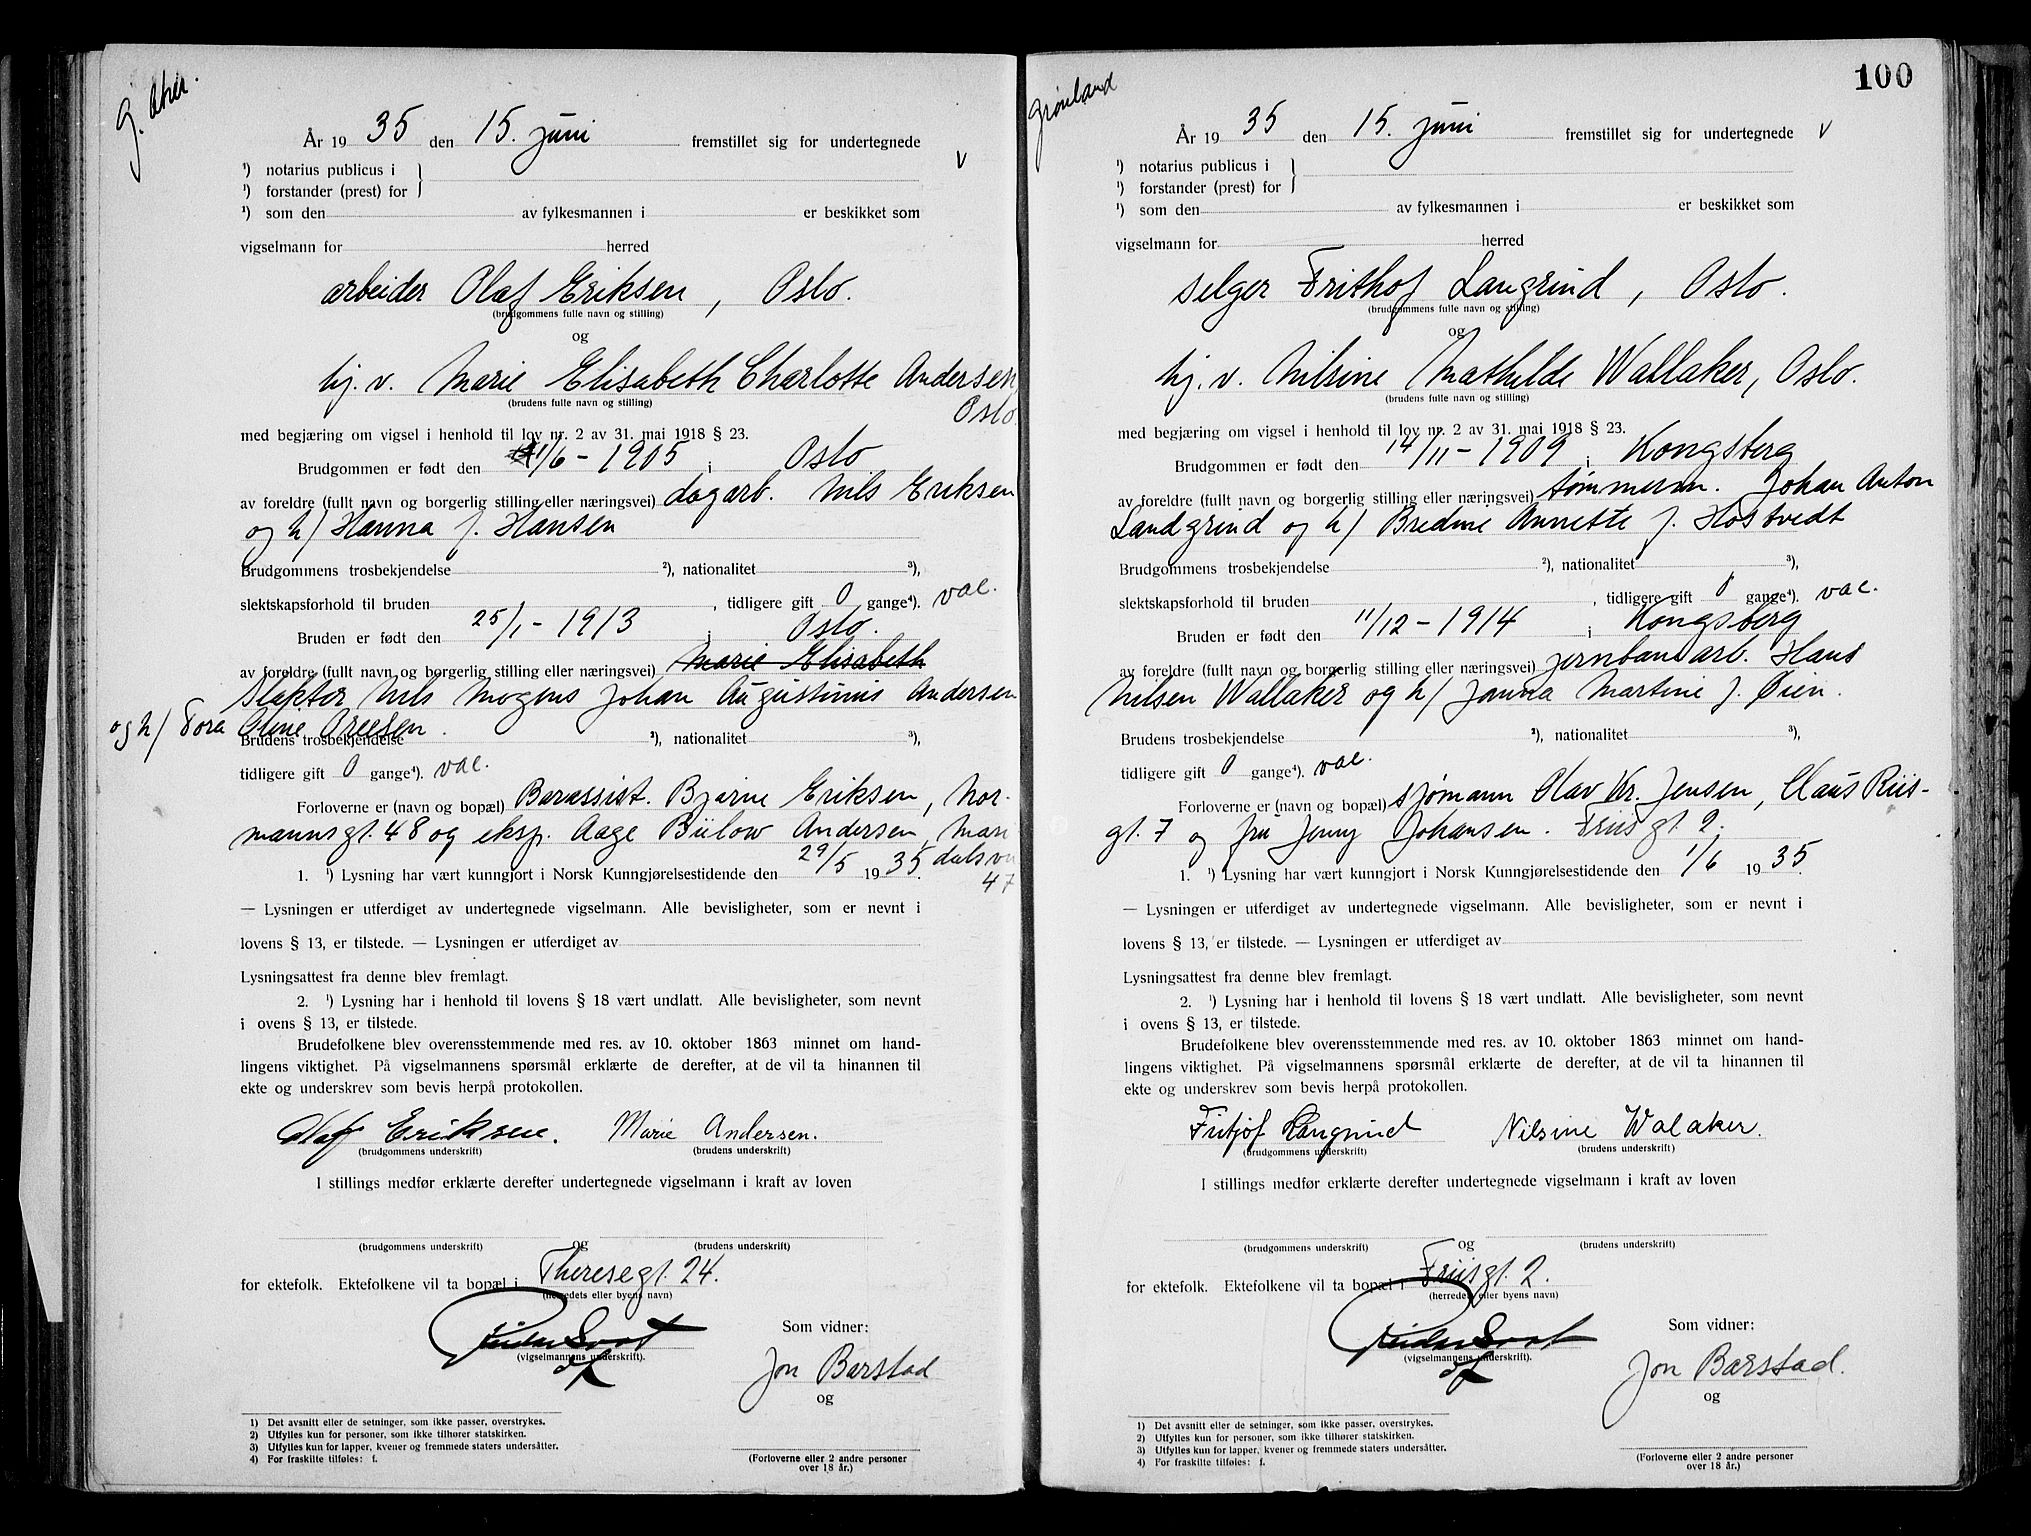 G. Aker.
År 1935 den 15. juni fremstillet sig for undertegnede
v
¹) notarius publicus i
¹) forstander (prest) for
¹) som den av fylkesmannen i er beskikket som
vigselmann for herred
arbeider Olaf Eriksen, Oslo.
(brudgommens fulle navn og stilling)
og
hj. v. Marie Elisabeth Charlotte Andersen
Oslo.
(brudens fulle navn og stilling)
med begjæring om vigsel i henhold til lov nr. 2 av 31. mai 1918 § 23.
Brudgommen er født den 11/6 - 1905 i Oslo
av foreldre (fullt navn og borgerlig stilling eller næringsvei) dagarb. Nils Eriksen
og h/ Hanna f. Hansen
Brudgommens trosbekjendelse ²), nationalitet ³),
slektskapsforhold til bruden , tidligere gift 0 gange⁴). vac.
Bruden er født den 25/1 - 1913 i Oslo.
av foreldre (fullt navn og borgerlig stilling eller næringsvei) Marie Elisabeth
Slakter Nils Mogens Johan Augustinus Andersen
og h/ Tora Oline
Brudens trosbekjendelse ²), nationalitet ³),
tidligere gift 0 gange⁴). vac.
Forloverne er (navn og bopæl) Barassist. Bjarne Eriksen, Nor-
mannsgt. 48 og eksp. Aage Bülow Andersen, Mari
dalsvn
47
1. ¹) Lysning har vært kunngjort i Norsk Kunngjørelsestidende den 29/5 1935.
— Lysningen er utferdiget av undertegnede vigselmann. Alle bevisligheter, som er nevnt i
lovens § 13, er tilstede. — Lysningen er utferdiget av
Lysningsattest fra denne blev fremlagt.
2. ¹) Lysning har i henhold til lovens § 18 vært undlatt. Alle bevisligheter, som nevnt
i ovens § 13, er tilstede.
Brudefolkene blev overensstemmende med res. av 10. oktober 1863 minnet om hand-
lingens viktighet. På vigselmannens spørsmål erklærte de derefter, at de vil ta hinannen til
ekte og underskrev som bevis herpå protokollen.
Olaf Eriksen. Marie Andersen.
(brudgommens underskrift) (brudens underskrift)
I stillings medfør erklærte derefter undertegnede vigselmann i kraft av loven
og
(brudgommens underskrift) (brudens underskrift)
for ektefolk. Ektefolkene vil ta bopæl i Theresegt. 24.
(herredets eller byens navn)
Som vidner:
(vigselmannens underskrift).
Jon Barstad
og
1) Det avsnitt eller de setninger, som ikke passer, overstrykes.
2) Utfylles kun for personer, som ikke tilhører statskirken.
3) Utfylles kun for lapper, kvener og fremmede staters undersåtter.
4) For fraskilte tilføles: f.
(Forloverne eller 2 andre personer
over 18 år.)
100
Grønland
År 1935 den 15. juni fremstillet sig for undertegnede
v
¹) notarius publicus i
¹) forstander (prest) for
¹) som den av fylkesmannen i er beskikket som
vigselmann for herred
selger Frithof Langrind, Oslo.
(brudgommens fulle navn og stilling)
og
hj. v. Nilsine Mathilde Wallaker, Oslo.
(brudens fulle navn og stilling)
med begjæring om vigsel i henhold til lov nr. 2 av 31. mai 1918 § 23.
Brudgommen er født den 14/11 - 1909 i Kongsberg
av foreldre (fullt navn og borgerlig stilling eller næringsvei) tømmerm. Johan Anton
Landgrind og h/ Bredine Annette f. Hostvedt
Brudgommens trosbekjendelse ²), nationalitet ³),
slektskapsforhold til bruden , tidligere gift 0 gange⁴). vac.
Bruden er født den 11/12 - 1914 i Kongsberg
av foreldre (fullt navn og borgerlig stilling eller næringsvei) jernbanearb. Hans
Nilsen Wallaker og h/ Janna Martine f. Øien.
Brudens trosbekjendelse ²), nationalitet ³),
tidligere gift 0 gange⁴). vac.
Forloverne er (navn og bopæl) sjømann Olav Kr. Jensen, Claus Riis-
gt. 7 og fru Jenny Johansen. Friisgt. 2.
1. ¹) Lysning har vært kunngjort i Norsk Kunngjørelsestidende den 1/6 1935.
— Lysningen er utferdiget av undertegnede vigselmann. Alle bevisligheter, som er nevnt i
lovens § 13, er tilstede. — Lysningen er utferdiget av
Lysningsattest fra denne blev fremlagt.
2. ¹) Lysning har i henhold til lovens § 18 vært undlatt. Alle bevisligheter, som nevnt
i ovens § 13, er tilstede.
Brudefolkene blev overensstemmende med res. av 10. oktober 1863 minnet om hand-
lingens viktighet. På vigselmannens spørsmål erklærte de derefter, at de vil ta hinannen til
ekte og underskrev som bevis herpå protokollen.
Fritjof Langrind Nilsine Walaker.
(brudgommens underskrift) (brudens underskrift)
I stillings medfør erklærte derefter undertegnede vigselmann i kraft av loven
og
(brudgommens underskrift) (brudens underskrift)
for ektefolk. Ektefolkene vil ta bopæl i Friisgt. 2.
(herredets eller byens navn)
Som vidner:
(vigselmannens underskrift).
Jon Barstad.
og
1) Det avsnitt eller de setninger, som ikke passer, overstrykes.
2) Utfylles kun for personer, som ikke tilhører statskirken.
3) Utfylles kun for lapper, kvener og fremmede staters undersåtter.
4) For fraskilte tilføles: f.
(Forloverne eller 2 andre personer
over 18 år.)